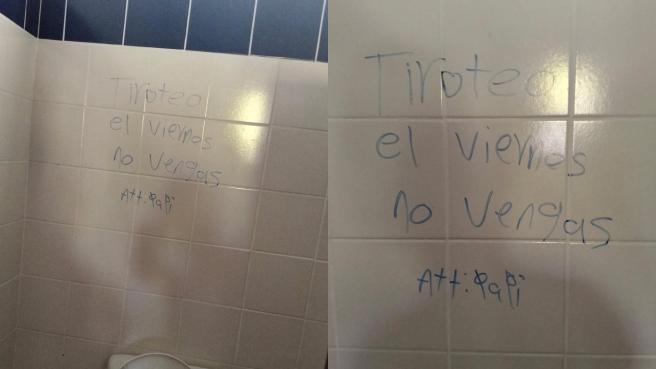 Tiroteo
el viernes
no vengas
Att: Papi
Tiroteo
el viernes
no vengas
Att: Papi